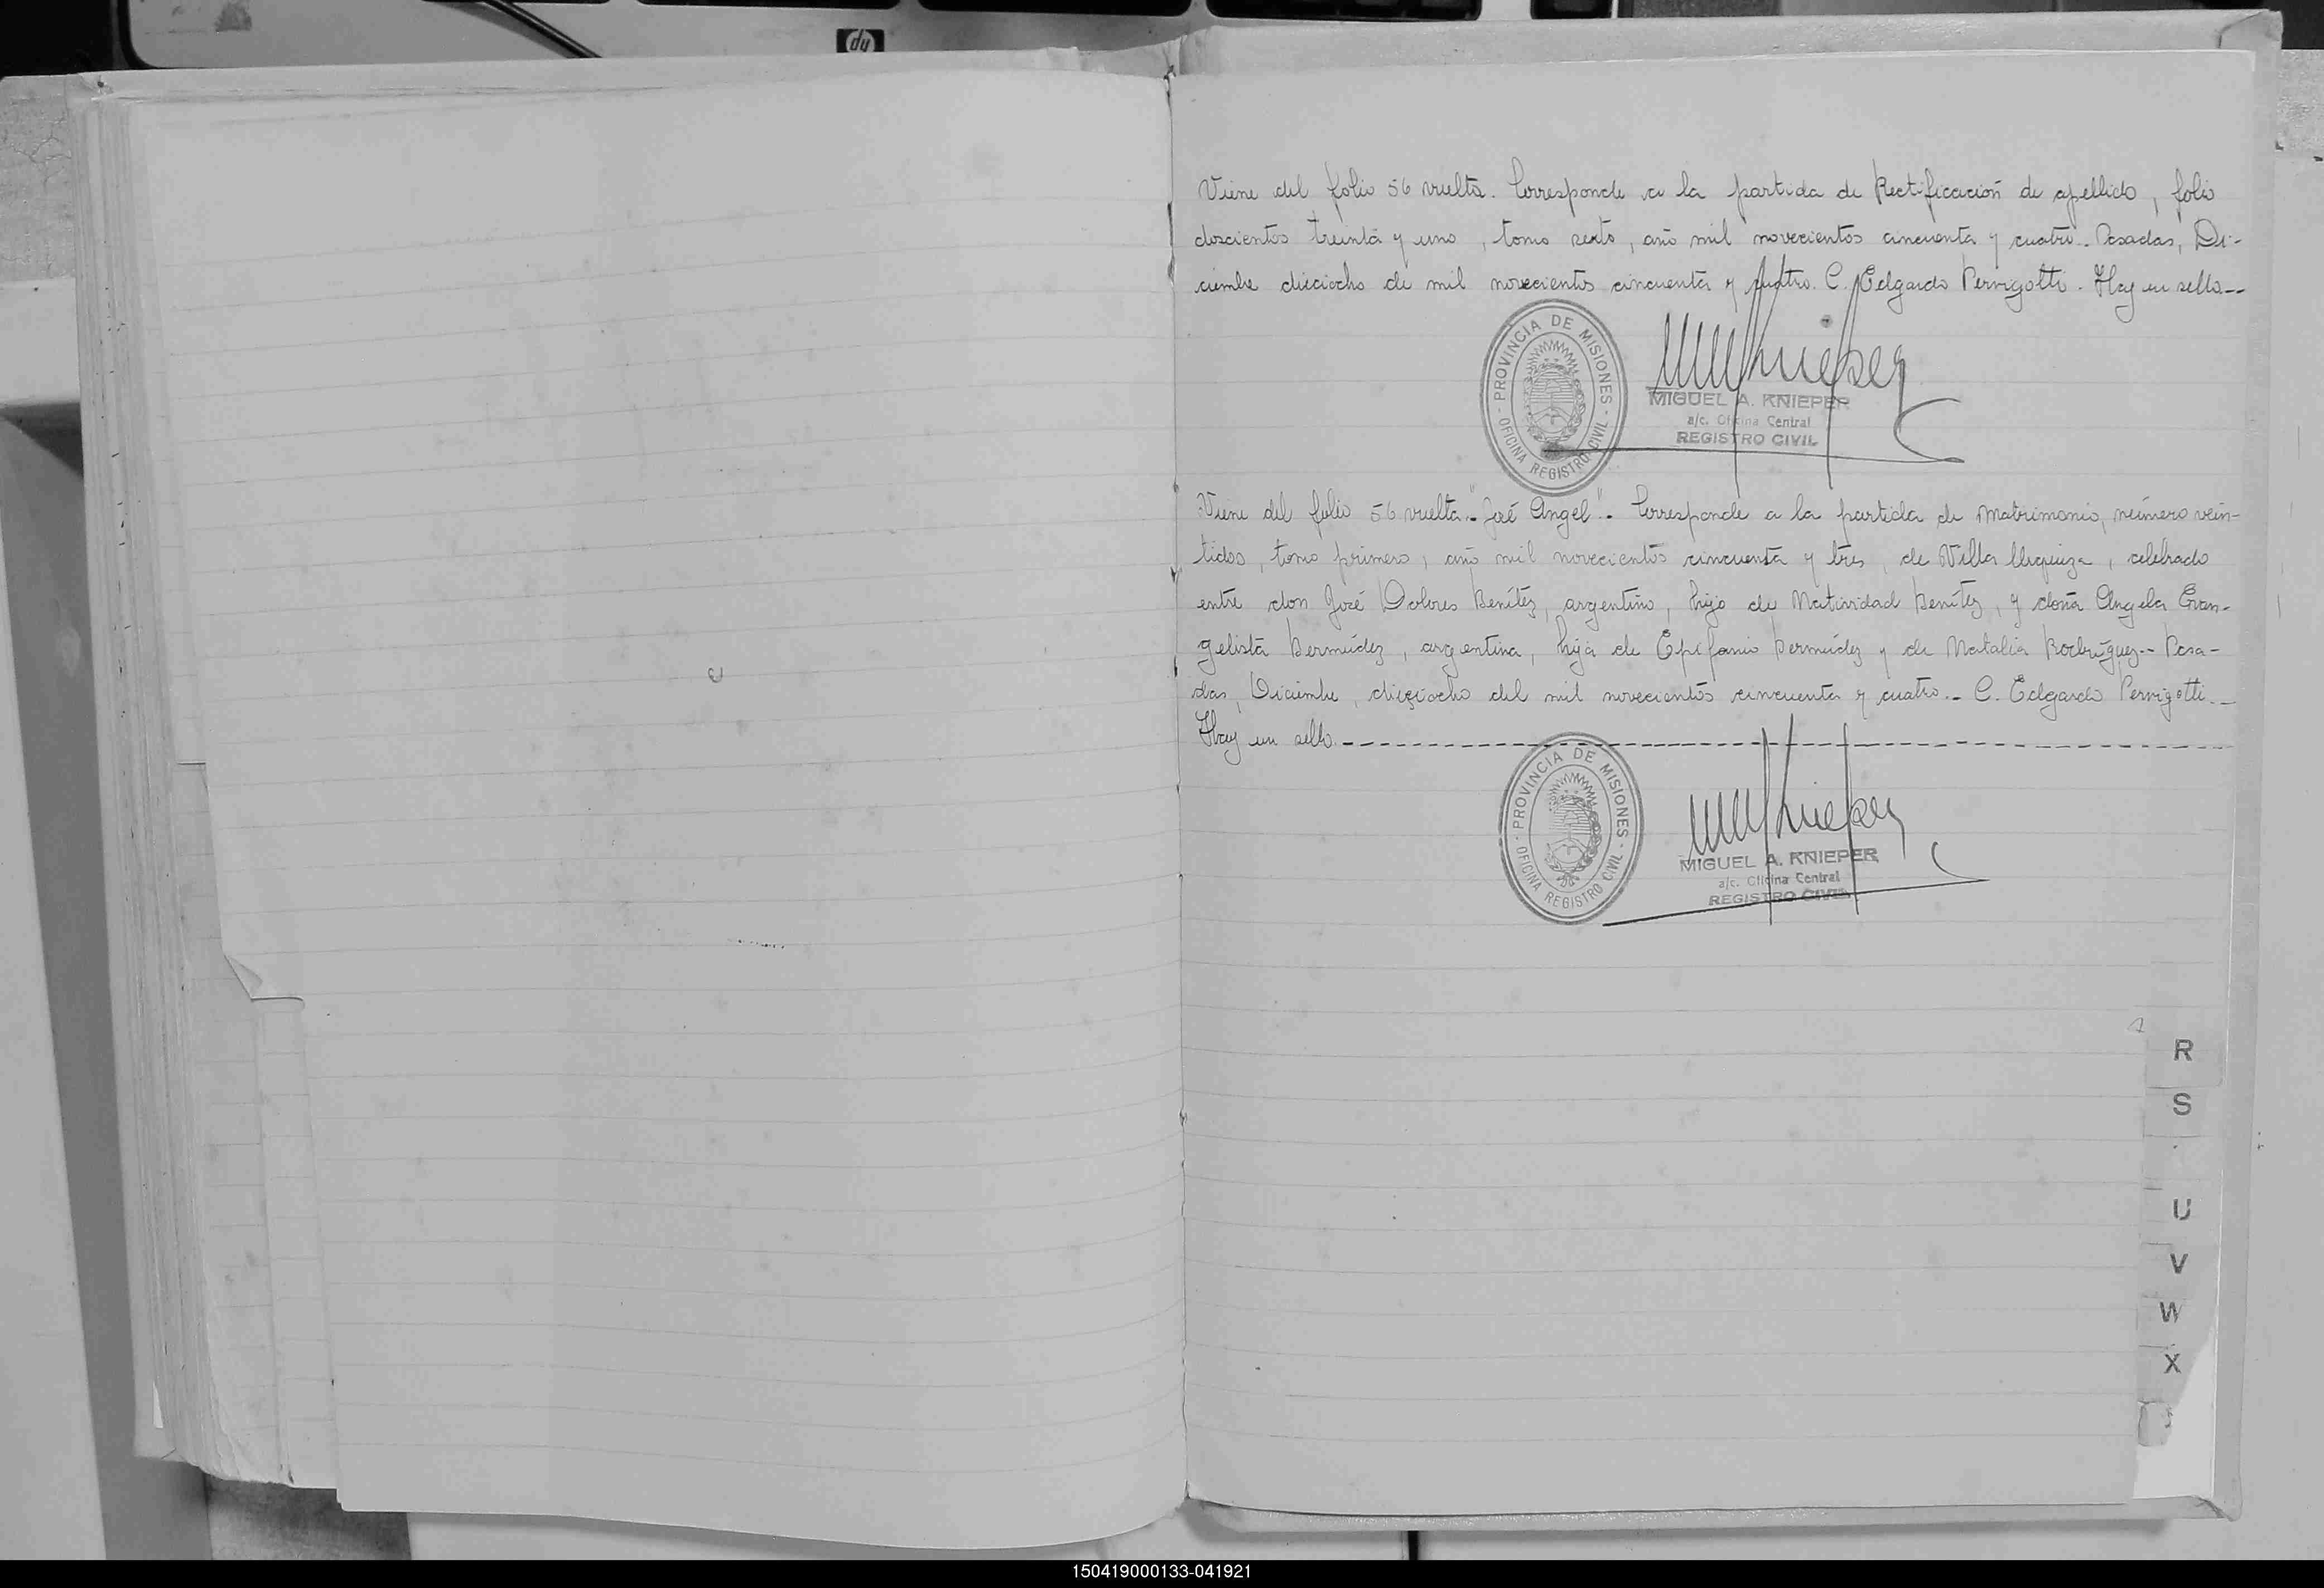 hp
Viene del folio 56 vuelta. Corresponde a la partida de Rectificación de apellido, folio
doscientos treinta y uno, tomo sexto, año mil novecientos cincuenta y cuatro.- Posadas, Di-
ciembre dieciocho de mil novecientos cincuenta y cuatro. C. Edgardo Pervigotti. Hay un sello--
- PROVINCIA DE MISIONES -
OFICINA REGISTRO CIVIL
MIGUEL A. KNIEPER
a/c. Oficina Central
REGISTRO CIVIL
Viene del folio 56 vuelta.- "José Angel".- Corresponde a la partida de Matrimonio, número vein-
tidos, tomo primero, año mil novecientos cincuenta y tres, de Villa Urquiza, celebrado
entre don José Dolores Benítez, argentino, hijo de Natividad Benítez, y doña Angela Evan-
gelista Bermúdez, argentina, hija de Epifanio Bermúdez y de Natalia Rodríguez-- Posa-
das, Diciembre, dieciocho del mil novecientos cincuenta y cuatro.- C. Edgardo Pervigotti.--
Hay un sello.--------
- PROVINCIA DE MISIONES -
OFICINA REGISTRO CIVIL
MIGUEL A. KNIEPER
a/c. Oficina Central
REGISTRO CIVIL
R
S
U
V
W
X
150419000133-041921